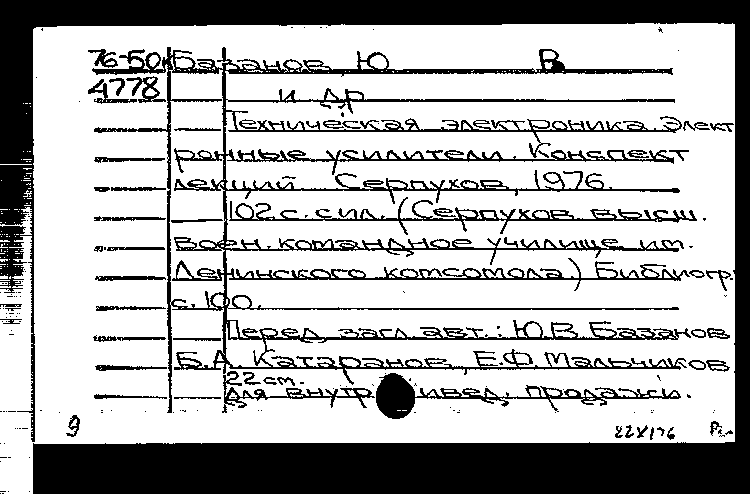 76-50к Базанов Ю В
4778 и др
Техническая электроника. Элект
ронные усилители. Конспект
лекций. Серпухов, 1976.
102 с. с ил. (Серпухов. высш.
воен. командное училище им.
Ленинского комсомола.) Библиогр.
с. 100.
Перед загл. авт.: Ю.В. Базанов
Б.А. Катаранов, Е.Ф. Мальчиков
22 см.
Для внутривед. продажи.
9 22X176